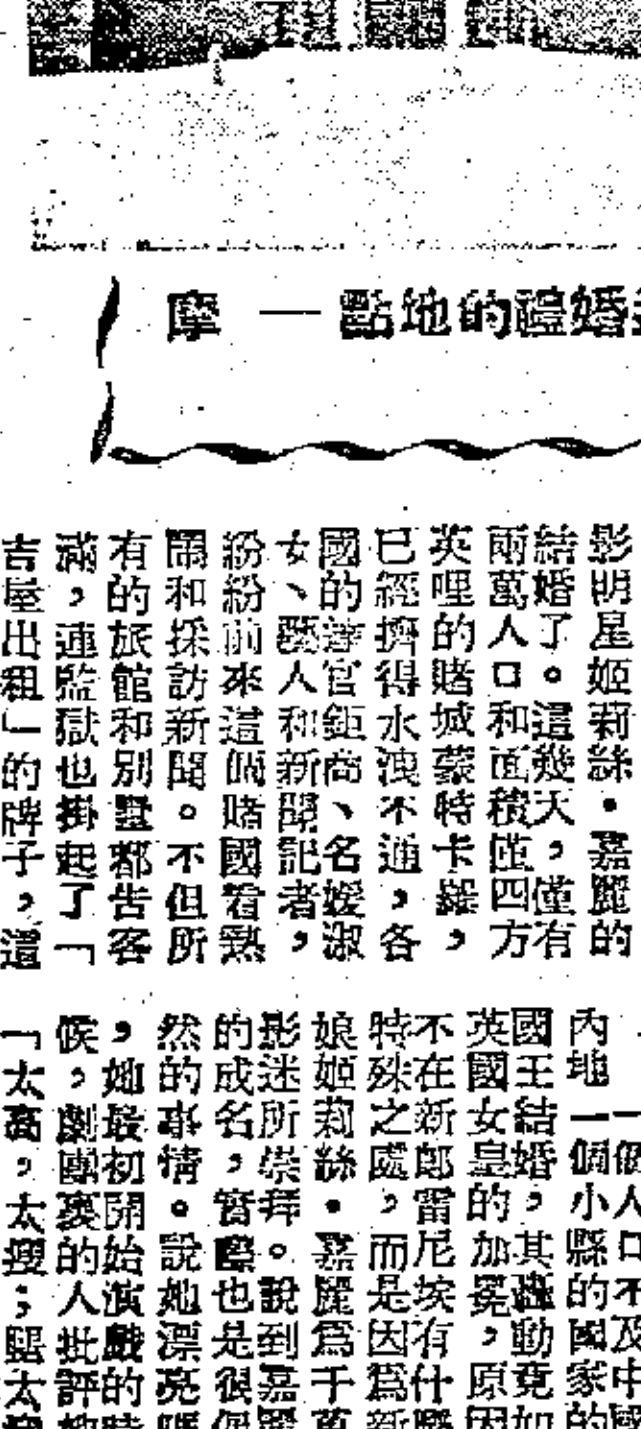 摩 — 點地的禮婚
影明星姬莉絲・嘉麗的
結婚了。這幾天，僅有
兩萬人口和面積僅四方
英哩的賭城蒙特卡羅，
已經擠得水洩不通，各
國的達官鉅商、名媛淑
女、藝人和新聞記者，
紛紛前來這個賭國看熱
鬧和採訪新聞。不但所
有的旅館和別墅都告客
滿，連監獄也掛起了「
吉屋出租」的牌子，這
一個人口不及中國
內地一個小縣的國家的
國王結婚，其轟動竟如
英國女皇的加冕，原因
不在新郎雷尼埃有什麼
特殊之處，而是因爲新
娘姬莉絲・嘉麗爲千萬
影迷所崇拜。說到嘉麗
的成名，實際也是很偶
然的事情。說她漂亮嗎
，她最初開始演戲的時
候，劇團裏的人批評她
「太高，太瘦；腿太